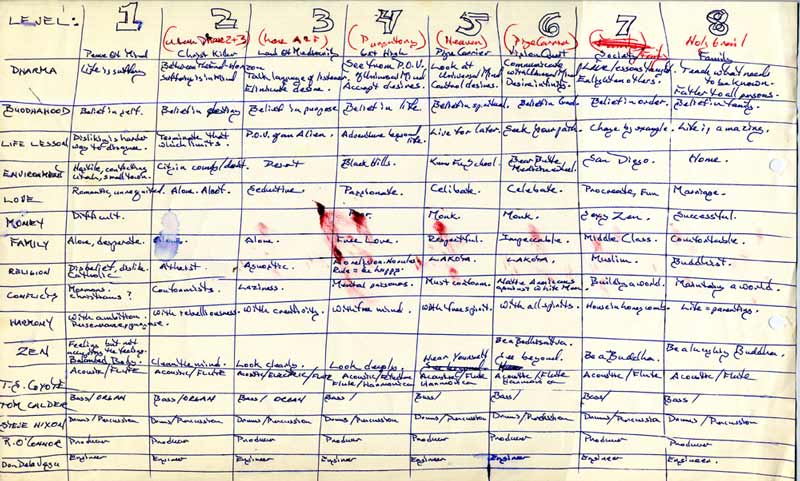 LEVEL: 1 2 3 4 5 6 7 8
(Purgatory) (Heaven) Holy Grail
Peace Of Mind Get High Pipe Carrier Vision Quest Family
DHARMA Life is suffering Between The Horizon See from P.O.V. Look at Communicate Teach what needs
Suffering is in Mind Talk language of listener, of Universal Mind Universal Mind with Universal Mind Enlighten others. to be known.
Eliminate desire. Accept desires. Control desires. Father to all persons.
BUDDHAHOOD Belief in self. Belief in destiny Belief in purpose Belief in life. Belief in spiritual. Belief in God Belief in order. Belief in family.
LIFE LESSON Disliking is harder Terminate that P.O.V. of an Alien. Adventure beyond Live for later. Seek your path. Change by example. Life is amazing.
way to disagree. which limits. life.
ENVIRONMENT Desert Black Hills. Kung Fu School. Bear Butte San Diego. Home.
Medicine Wheel
LOVE Romantic, unrequited. Alone. Aloof. Seductive Passionate. Celibate Celebate. Procreate, Fun Marriage.
MONEY Difficult. Poor. Monk. Monk. Zen. Successful.
FAMILY Alone, desperate. Alone. Alone. Free Love. Respectful. Impeccable. Middle Class. Comfortable.
RELIGION Disbelief, dislike. Atheist. Agnostic. LAKOTA. LAKOTA. Muslim. Buddhist.
Catholic Rule = be happy.
CONFLICTS Mormons. Conformists. Laziness. Mental prisoners. Must conform. Native Americans Building a world. Maintaining a world.
Christians? against White Man.
HARMONY With ambition. With rebelliousness. With creativity. With free mind. With free spirit. With all spirits. House in honeycomb. Life = parenting.
ZEN Feeling but not Clean the mind. Look clearly. Look deeply. Hear Yourself Be a Bodhisattva. Be a Buddha. Be a laughing Buddha.
accepting the feelings. See beyond.
T.C. COYOTE Acoustic/Flute Acoustic/Flute Acoustic/Electric/Flute Acoustic/ Acoustic/Flute Acoustic/Flute Acoustic/Flute Acoustic/Flute
Flute/Harmonica Harmonica Harmonica
TOM CALDER Bass/ORGAN Bass/ORGAN Bass/ ORGAN Bass/ Bass/ Bass/ Bass/ Bass/
STEVE NIXON Drums/Percussion Drums/Percussion Drums/Percussion Drums/Percussion Drums/Percussion Drums/Percussion Drums/Percussion Drums/Percussion
R. O'CONNOR Producer Producer Producer Producer Producer Producer Producer Producer
Engineer Engineer Engineer Engineer Engineer Engineer Engineer Engineer.